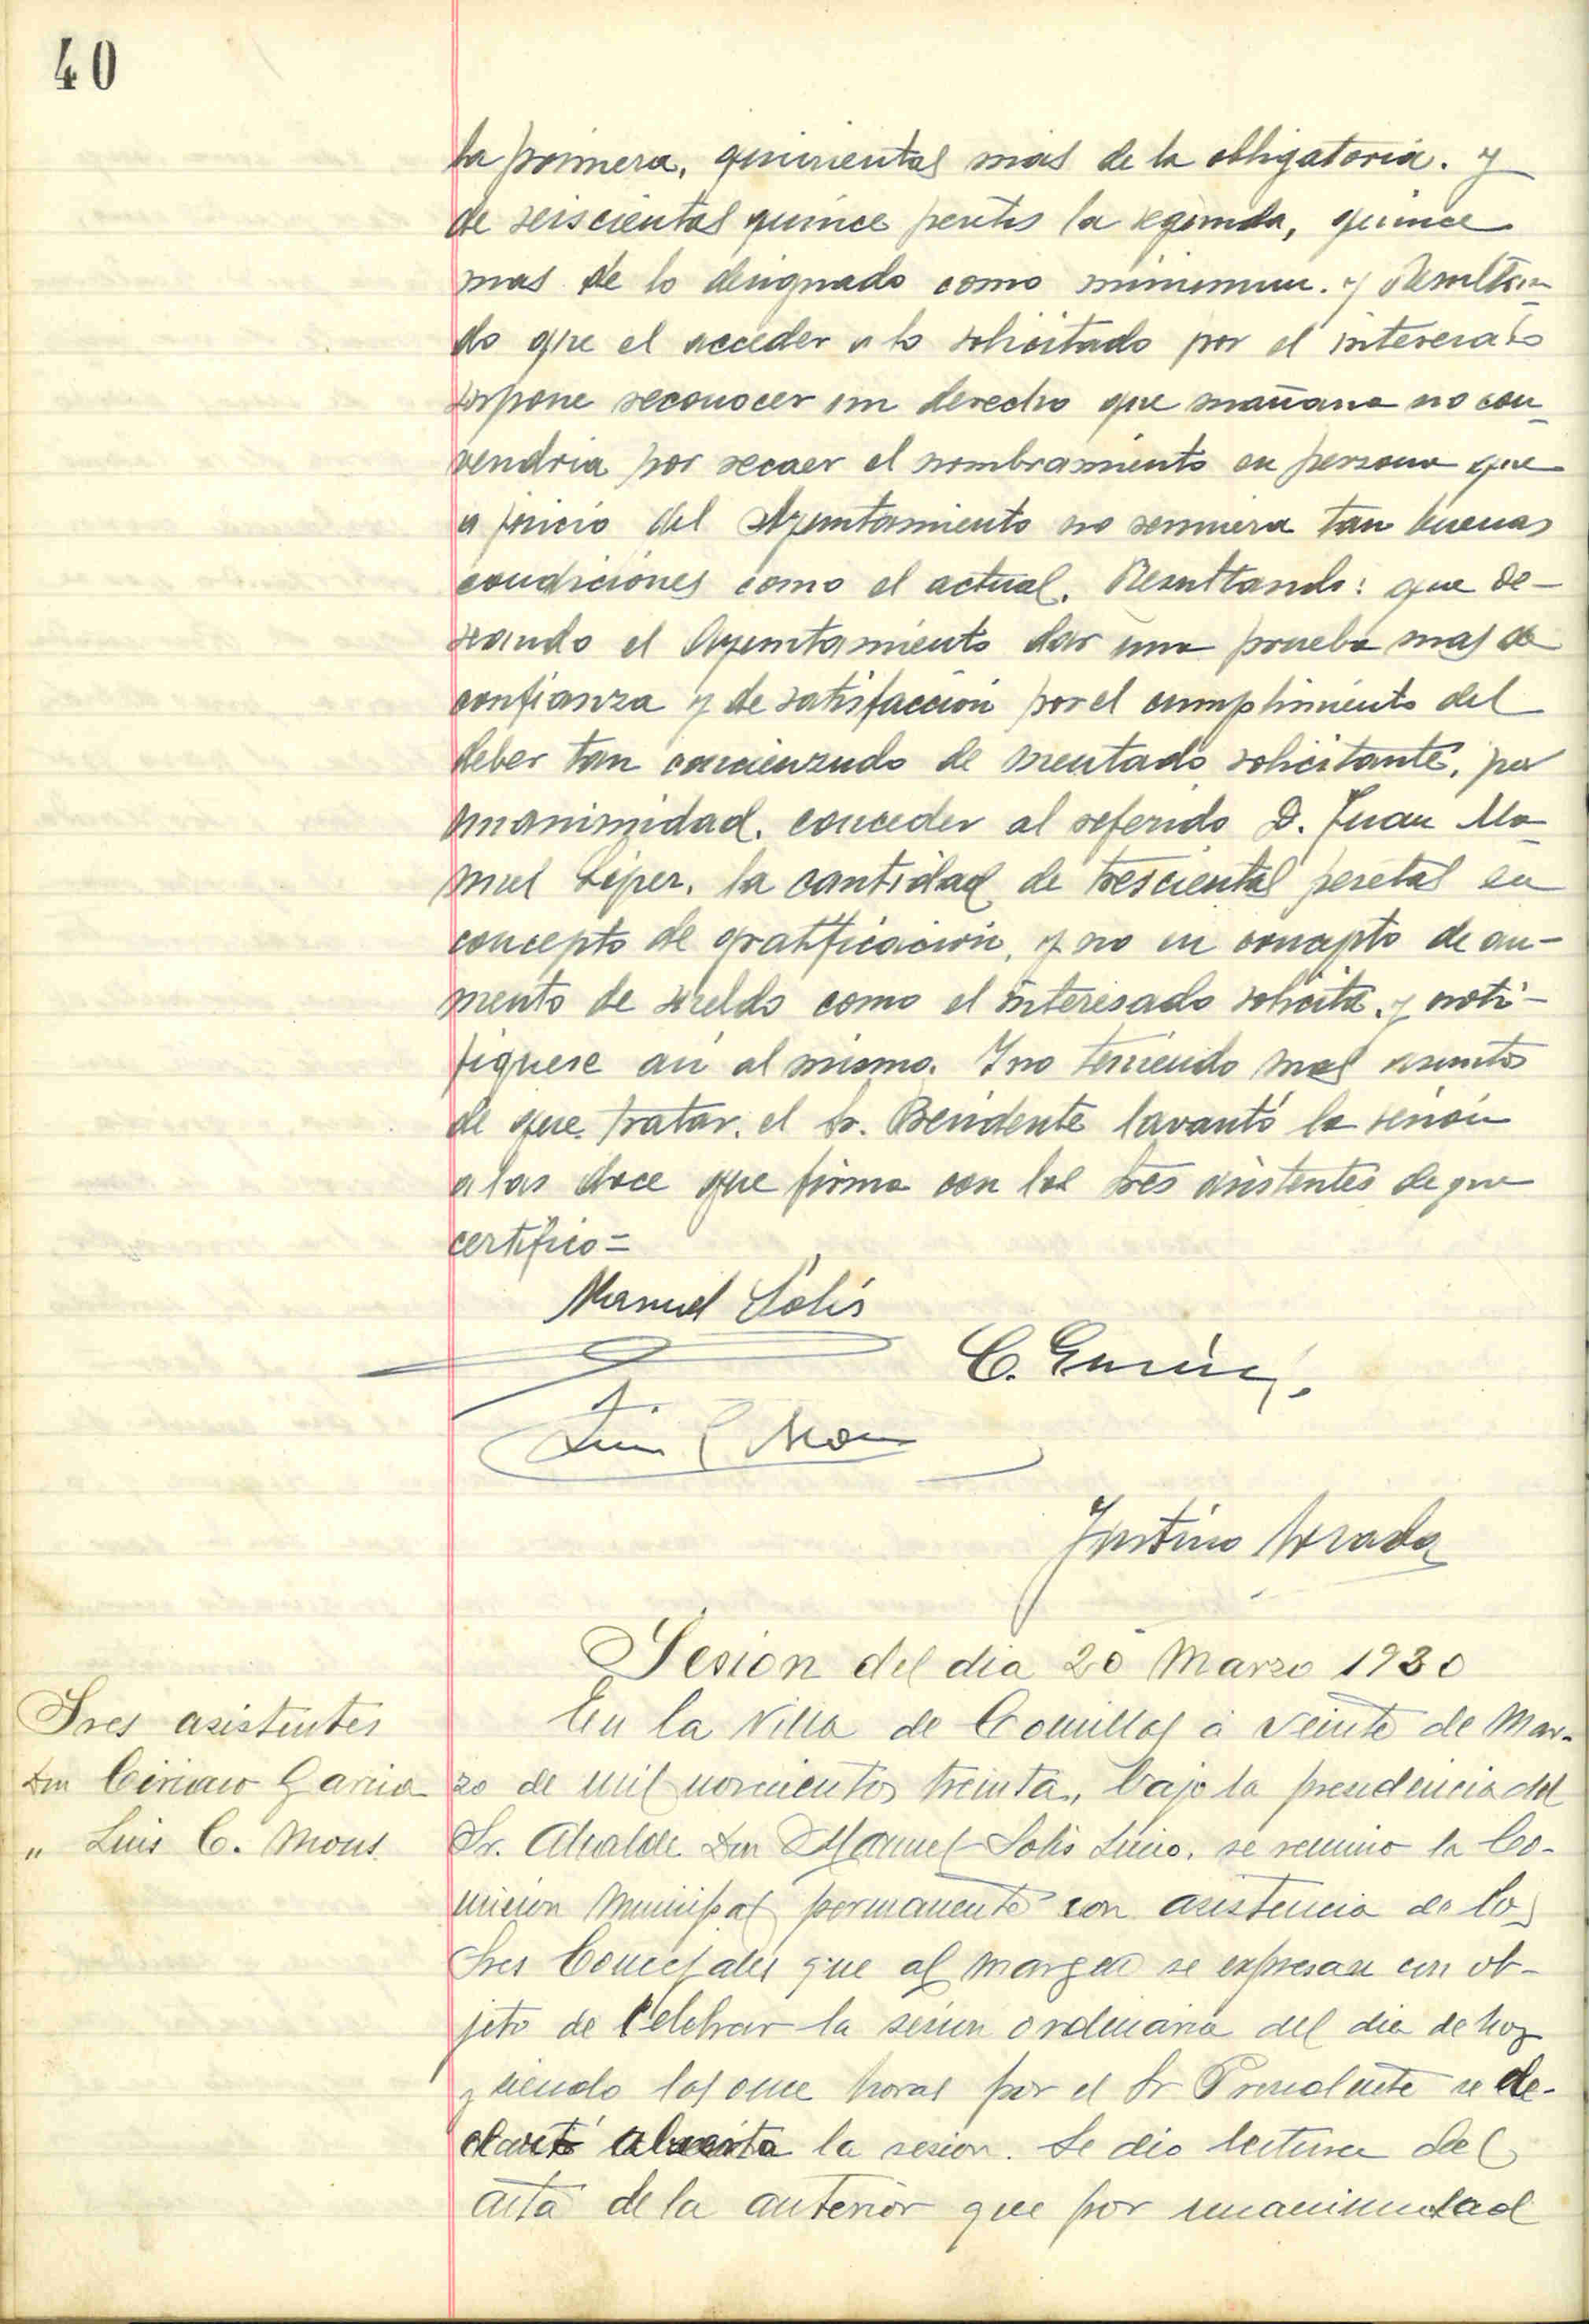 40
la primera, quinientas mas de la obligatoria. y
de seiscientas quince pesetas la segunda, quince
mas de lo designado como minimum. y Resultan-
do que el acceder a lo solicitado por el interesado
supone reconocer un derecho que mañana no con-
vendria por recaer el nombramiento en persona que
a juicio del Ayuntamiento no reuniera tan buenas
condiciones como el actual. Resultando: que de-
seando el Ayuntamiento dar una prueba mas de
confianza y de satisfacción por el cumplimiento del
deber tan concienzudo de mentado solicitante, por
unanimidad. conceder al referido D. Juan Ma-
nuel la cantidad de trescientas pesetas en
concepto de gratificación, y no en concepto de au-
mento de sueldo como el interesado solicita. y noti-
fiquese asi al mismo. Y no teniendo mas asuntos
de que tratar. el Sr. Presidente lavantó la sesión
a las doce que firma con los sres asistentes de que
certifico =
Manuel Solís
C. García
Luis C Mons
Justino
Sesion del dia 20 Marzo 1930
Sres asistentes
Don Ciriaco Garcia
" Luis C. Mons
En la Villa de Comillas á veinte de Mar-
zo de mil novecientos treinta, bajo la presidencia del
Sr. Alcalde Don Manuel Solis se reunio la Co-
mision Municipal permanente con asistencia de los
Sres Concejales que al margen se expresan con ob-
jeto de Celebrar la sesion ordinaria del dia de hoy
y siendo las once horas por el Sr Presidente se de-
claró abierta la sesion. Se dio lectura del
acta de la anterior que por unanimidad